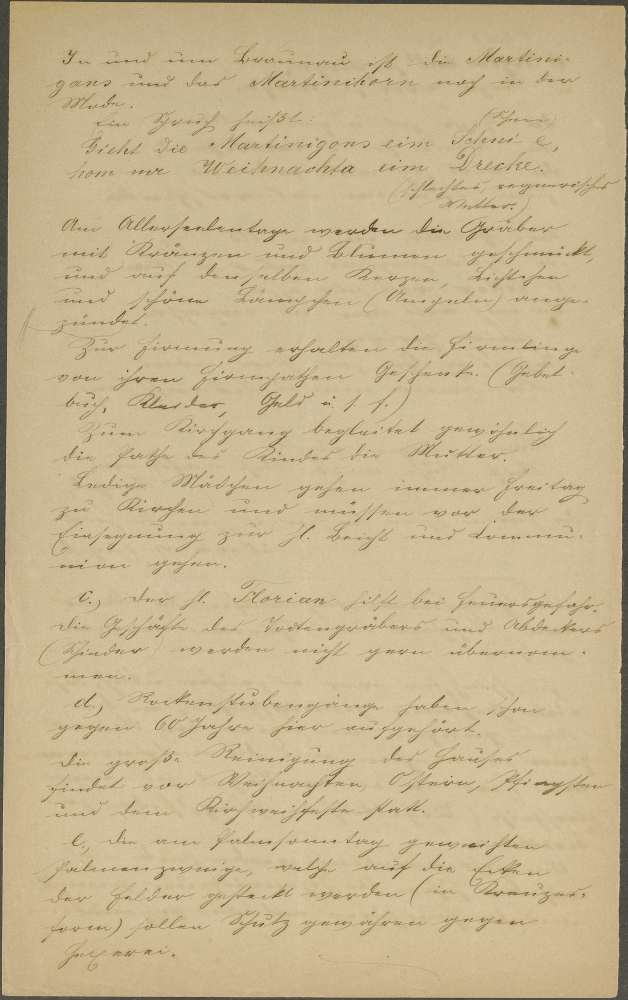 In und um Braunau ist die Martini-
gans und das Martinihorn noch in der
Mode.
Ein Spruch heißt: (Schnee)
Sieht die Martinigons eim Schnie,
hom mr Weihnachta eim Drecke.
(schlechtes, regnerisches
Wetter.)
Am Allerseelentage werden die Gräber
mit Kränzen und Blumen geschmückt,
und auf denselben Kerzen, Lichtchen
und schöne Lämpchen (Ampeln) ange-
zündet.
Zur Firmung erhalten die Firmlinge
von ihren Firmpathen Geschenke. (Gebet-
buch, Kleider, Geld u. s. f.)
Zum Kirchgang begleitet gewöhnlich
die Pathe des Kindes die Mutter.
Ledige Mädchen gehen immer Freitag
zu Kirchen und müssen vor der
Einsegnung zur hl. Beicht und Commu-
nion gehen.
c.) Der hl. Florian hilft bei Feuersgefahr.
Die Geschäfte des Todtengräbers und Abdeckers
(Schinder) werden nicht gern übernom-
men.
d.) Rockenstubengänge haben schon
gegen 60 Jahre hier aufgehört.
Die große Reinigung des Hauses
findet vor Weihnachten, Ostern, Pfingsten
und dem Kirchweihfeste statt.
e.) Die am Palmsonntag geweihten
Palmenzweige, welche auf die Ecken
der Felder gesteckt werden (in Kreuzes-
form) sollen Schutz gewähren gegen
Hexerei.